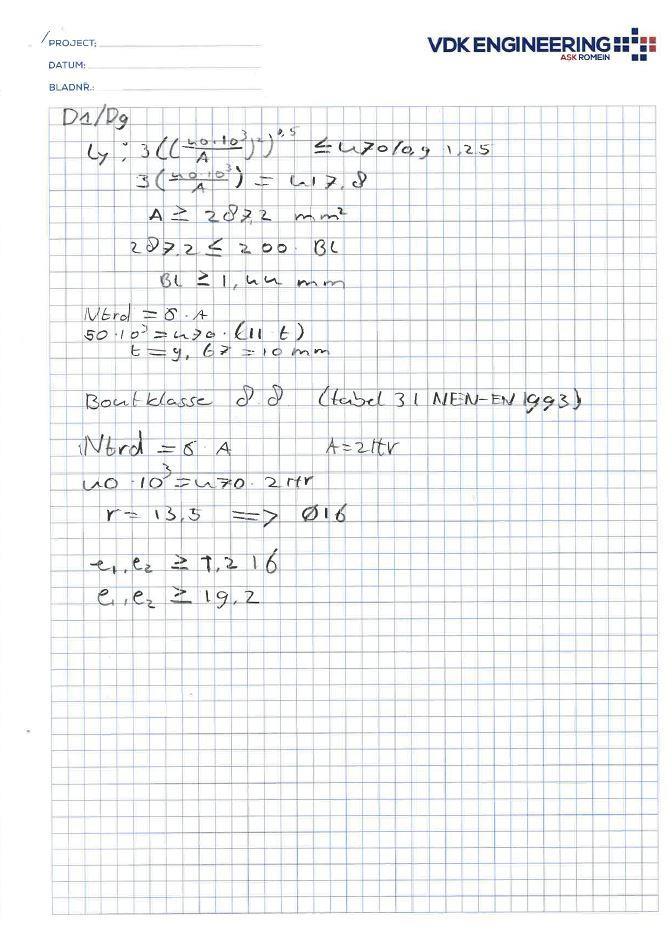 PROJECT:
VDK ENGINEERING
ASK ROMEIN
DATUM:
BLADNR.:
D1/Dg
Ly : 3((40·10³/A)²)^0,5 ≤ 470/0,9 1,25
3(40·10³/A) = 417,8
A ≥ 287,2 mm²
287,2 ≤ 200 · BL
BL ≥ 1,44 mm
Ntrd = σ · A
50·10³ = 470 · (11 t)
t = 9,67 = 10 mm
Boutklasse 8 8 (tabel 31 NEN-EN 1993)
Ntrd = σ · A A = 2πr
40 · 10³ = 470 · 2πr
r = 13,5 => Ø16
e₁, e₂ ≥ 1,2 16
e₁, e₂ ≥ 19,2